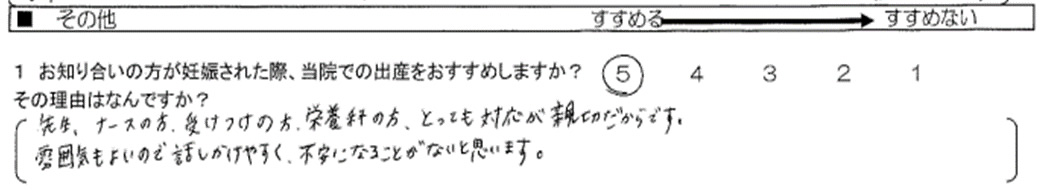 ■ その他 すすめる すすめない
1 お知り合いの方が妊娠された際、当院での出産をおすすめしますか? 5 4 3 2 1
その理由はなんですか?
先生、ナースの方、受けつけの方、栄養科の方、とっても対応が親切だからです。
雰囲気もよいので話しかけやすく、不安になることがないと思います。